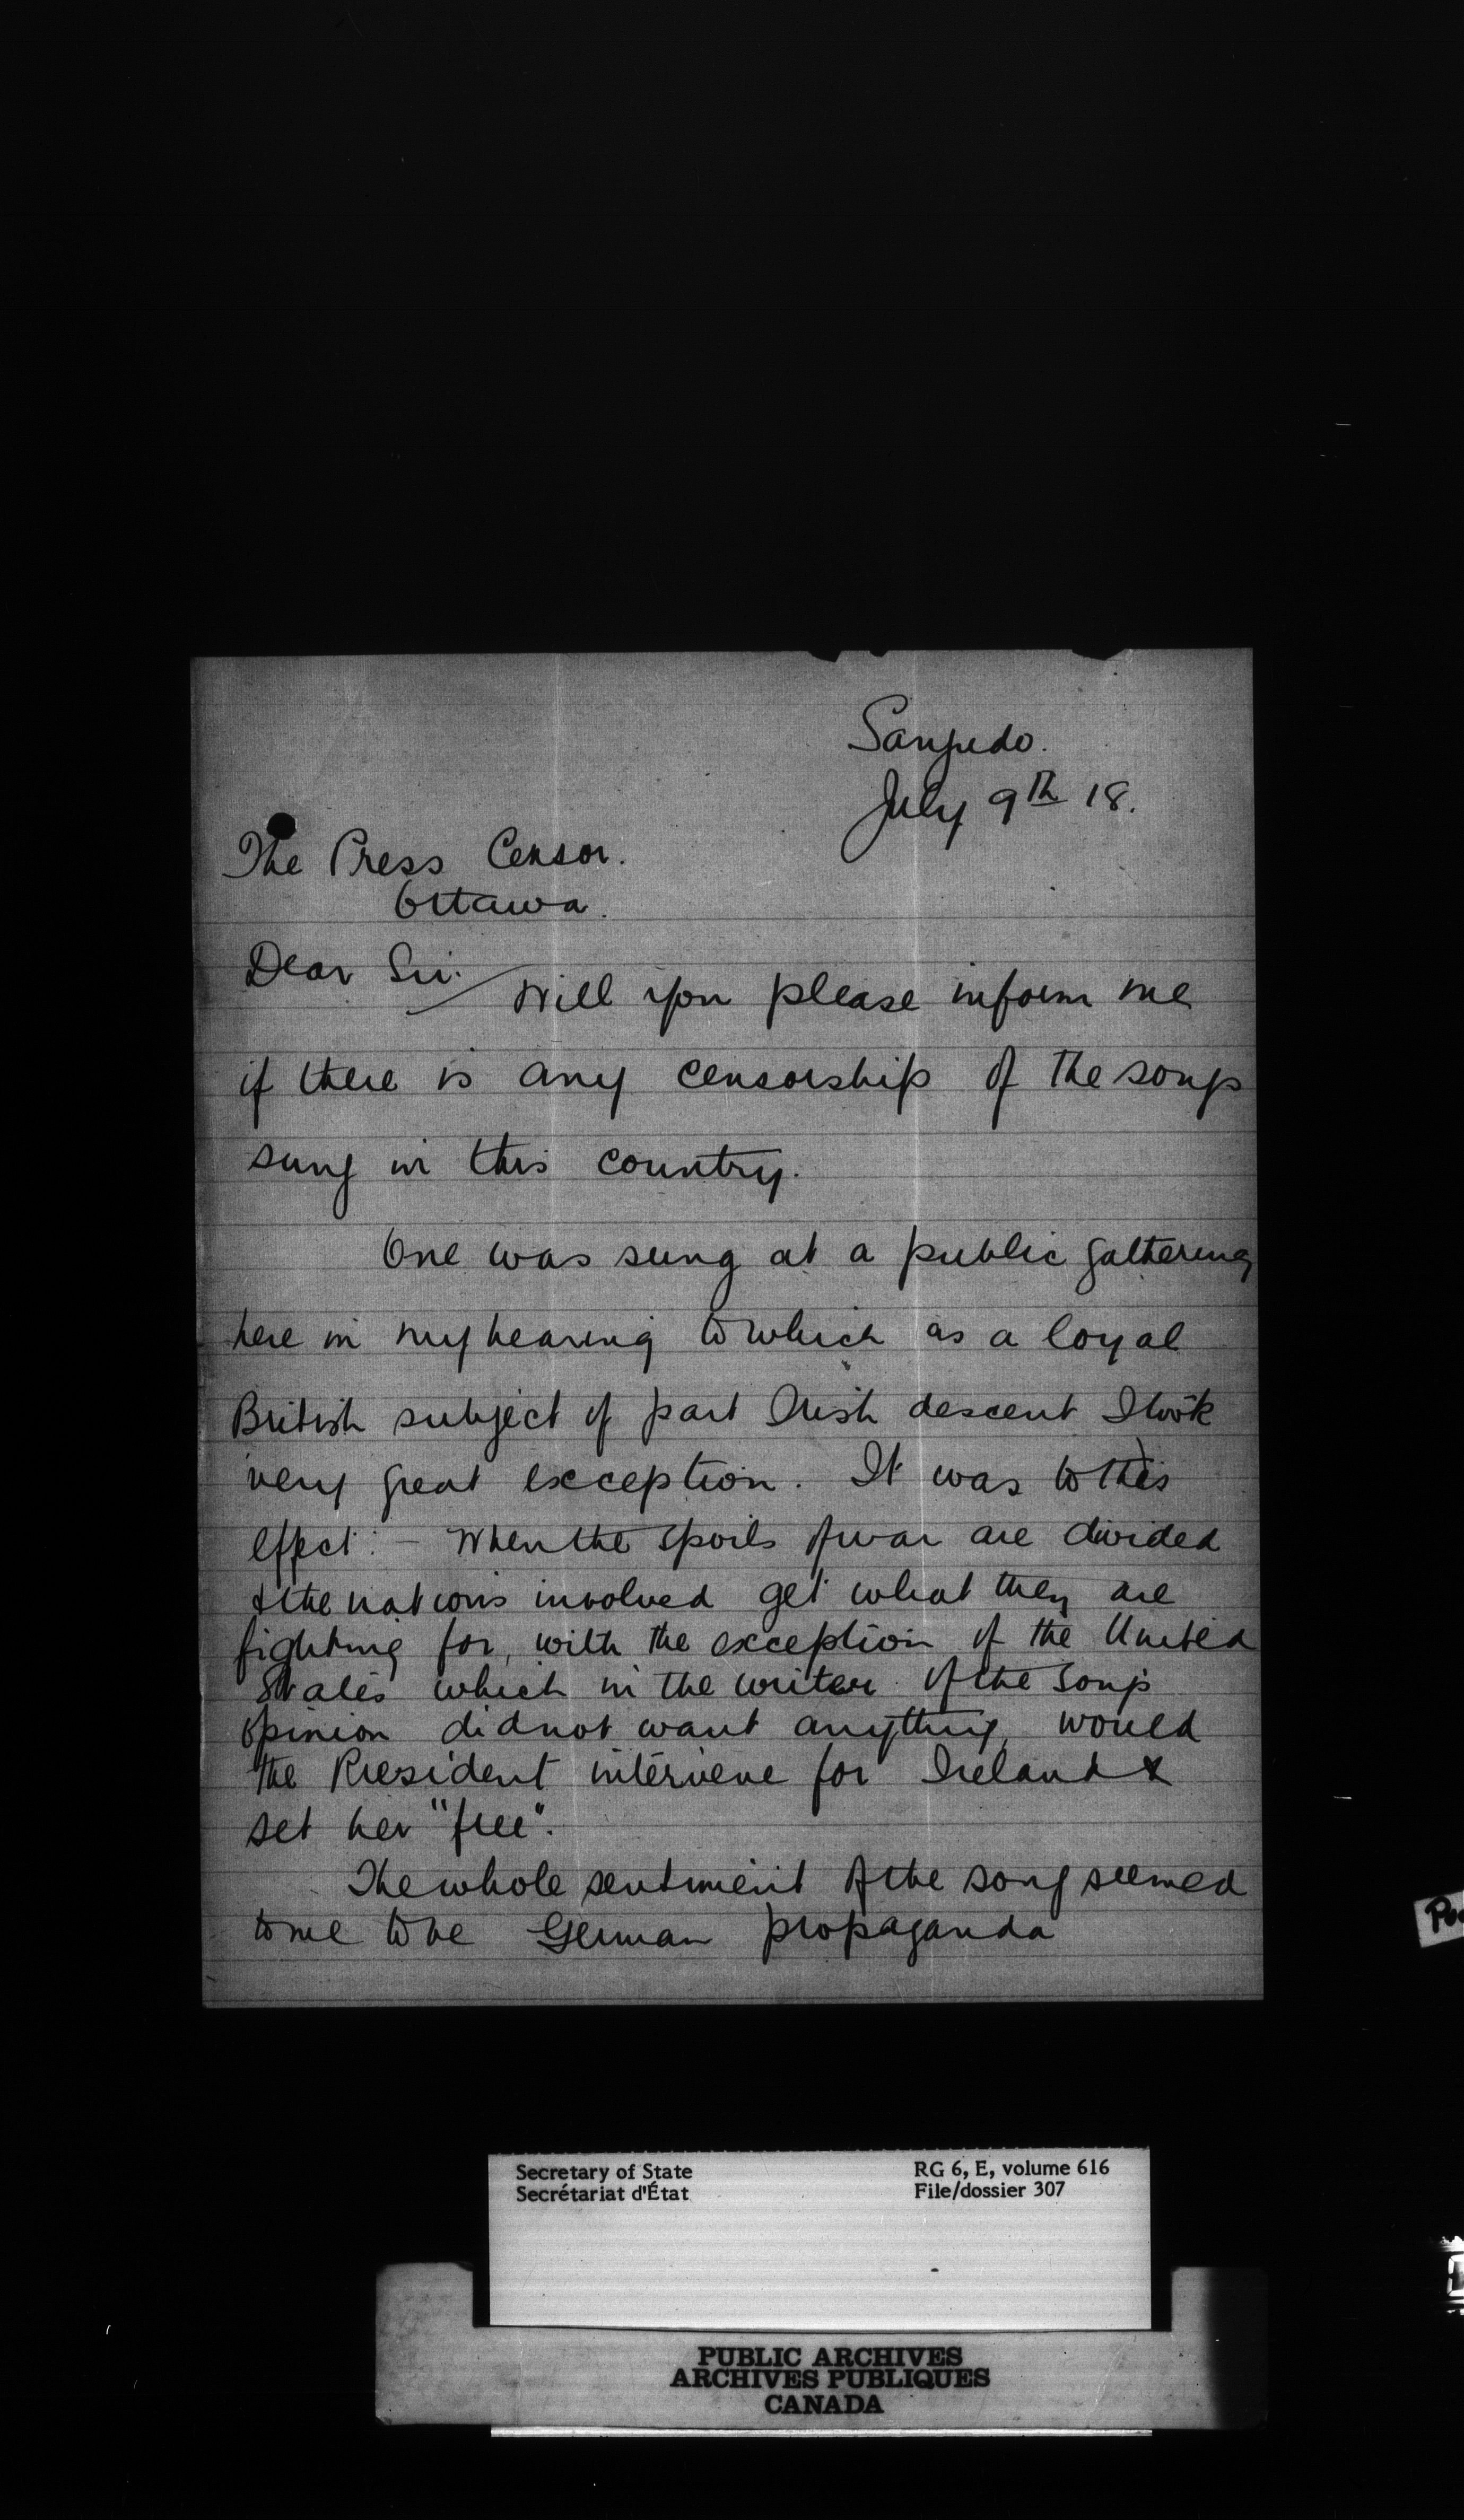 Sangudo.
July 9th 18.
The Press Censor.
Ottawa.
Dear Sir.
Will you please inform me
if there is any censorship of the songs
sung in this country.
One was sung at a public gathering
here in my hearing to which as a loyal
British subject of part Irish descent I took
very great exception. It was to this
effect: - When the spoils of war are divided
& the nations involved get what they are
fighting for, with the exception of the United
States which in the writer of the songs
opinion did not want anything, would
the President intervene for Ireland &
set her "free".
The whole sentiment of the song seemed
to me to be German propaganda
Secretary of State
Secrétariat d'État
RG 6, E, volume 616
File/dossier 307
PUBLIC ARCHIVES
ARCHIVES PUBLIQUES
CANADA